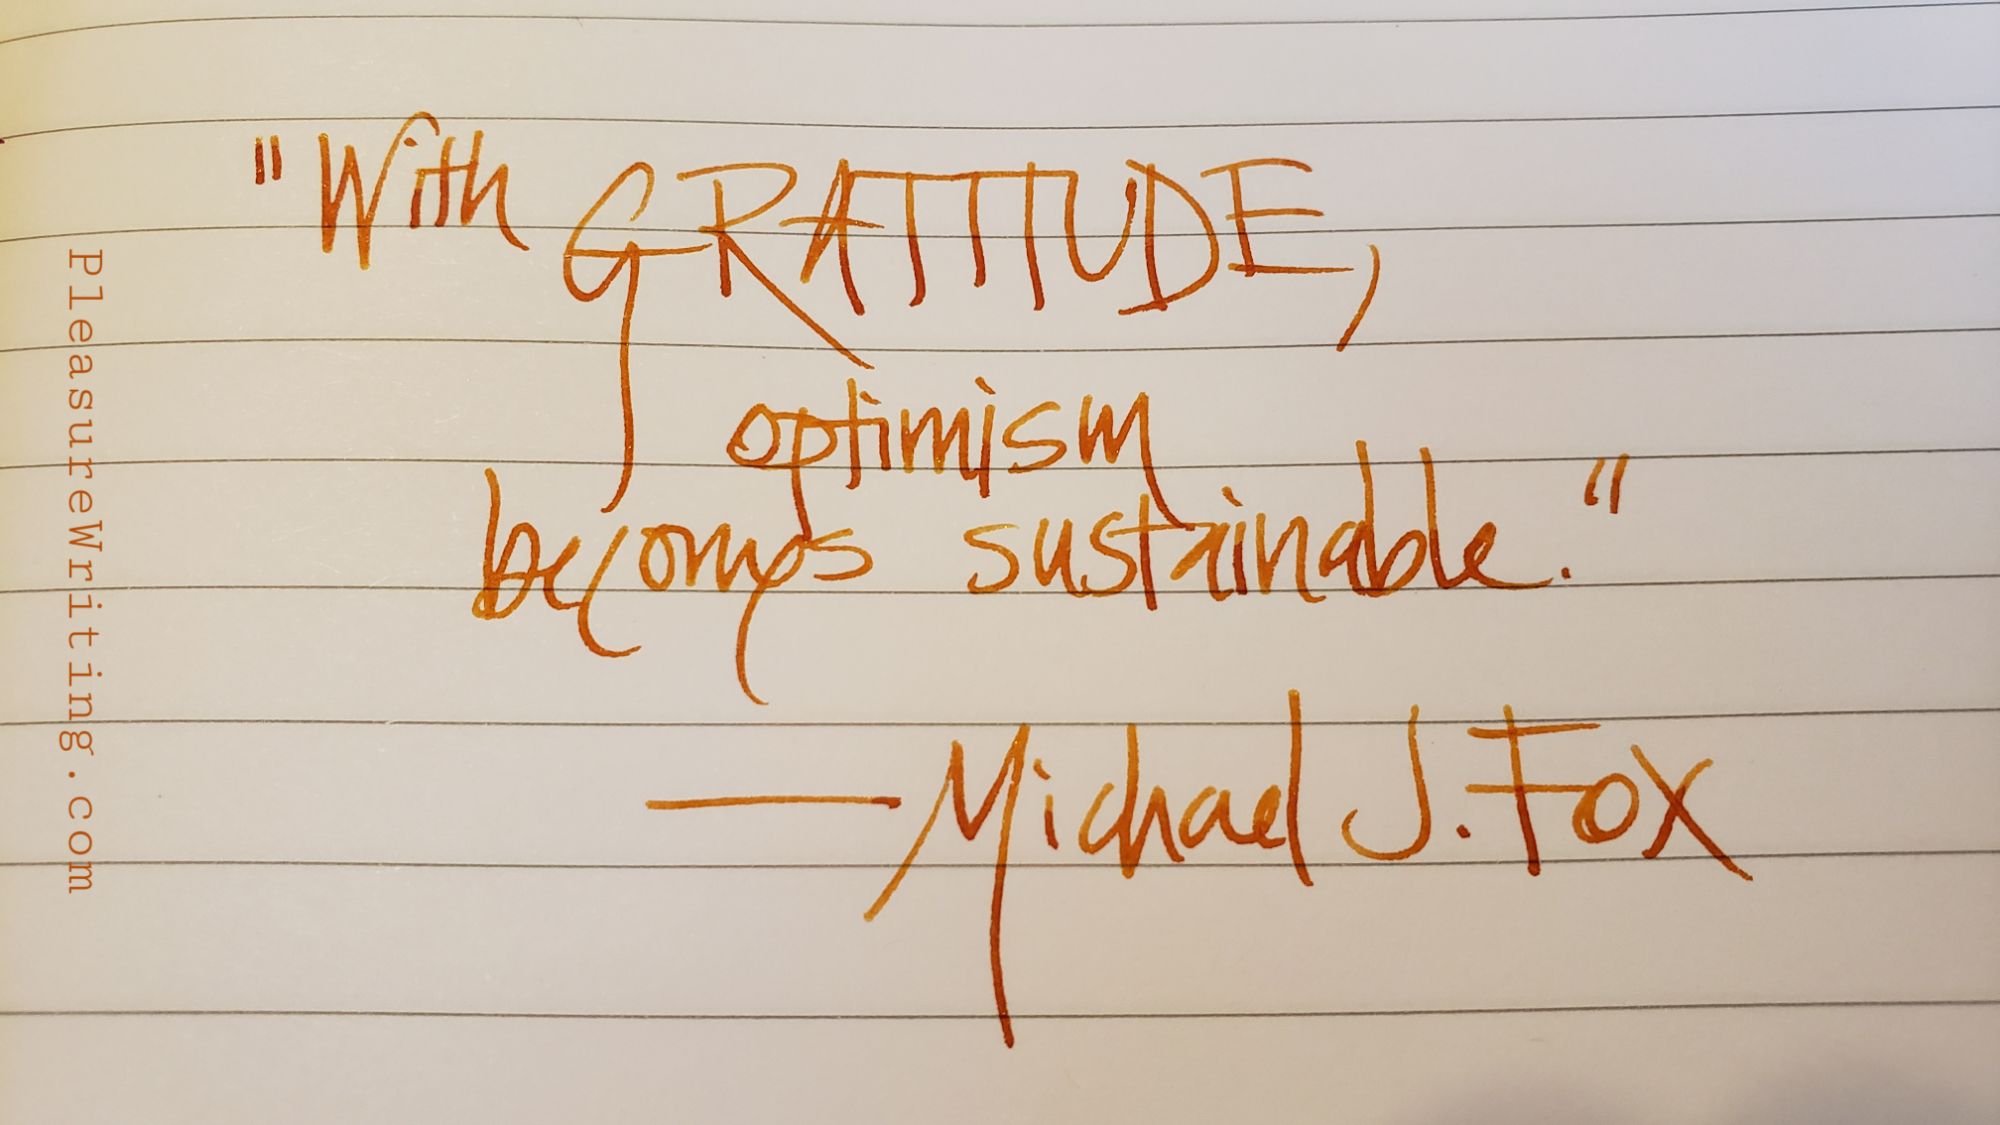 "With GRATITUDE,
optimism
becomes sustainable."
— Michael J. Fox
PleasureWriting.com